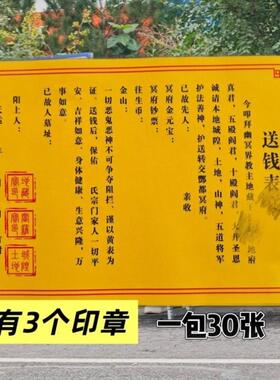 送钱表
今叩拜幽冥界教主地藏
真君，五殿阎君，十殿阎君
诚请本地城隍，土地，山神，五道将军
护法善神，护送转交酆都冥府。
已故先人：亲收
冥府金元宝：
冥府钞票：
往生币：
金山：
一切恶鬼恶神不可争夺阻拦，谨以黄表为
证。送钱后，保佑 氏宗门家人一切平
安、吉祥如意、身体健康、生意兴隆，万
事如意。
已故人墓地：
阳上人：
有3个印章
一包30张